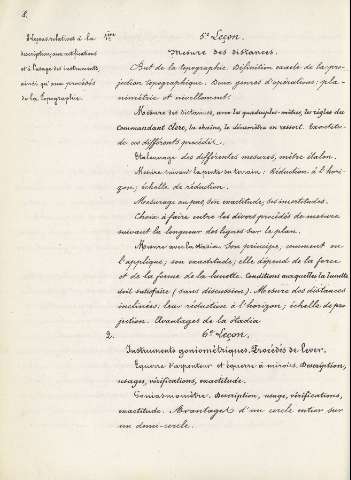 8.
Leçons relatives à la
description, aux rectifications
et à l'usage des instruments,
ainsi qu'aux procédés
de la topographie.
1ère
5e Leçon.
Mesure des distances.
But de la topographie. Définition exacte de la pro-
jection topographique. Deux genres d'opérations: pla-
nimétrie et nivellement.
Mesure des distances, avec les quadruples-mètres, les règles du
Commandant Clerc, la chaîne, la dynamètre en ressort. Exactitude
de ces différents procédés.
Etalonnage des différentes mesures, mètre étalon.
Mesure suivant la pente du terrain: Réduction à l'hori-
zon; échelle de réduction.
Mesurage au pas, son exactitude, ses incertitudes.
Choix à faire entre les divers procédés de mesure
suivant la longueur des lignes sur le plan.
Mesure avec la stadia. Son principe, comment on
l'applique; son exactitude; elle dépend de la force
et de la forme de la lunette. Conditions auxquelles la lunette
doit satisfaire (sans discussion). Mesure des distances
inclinées: leur réduction à l'horizon; échelle de pro-
jection. Avantages de la Stadia
2.
6e Leçon.
Instruments goniométriques. Procédés de lever.
Equerre d'arpenteur et équerre à miroirs. Description,
usages, vérifications, exactitude.
Goniasmomètre. Description, usage, vérifications,
exactitude. Avantages d'un cercle entier sur
un demi-cercle.